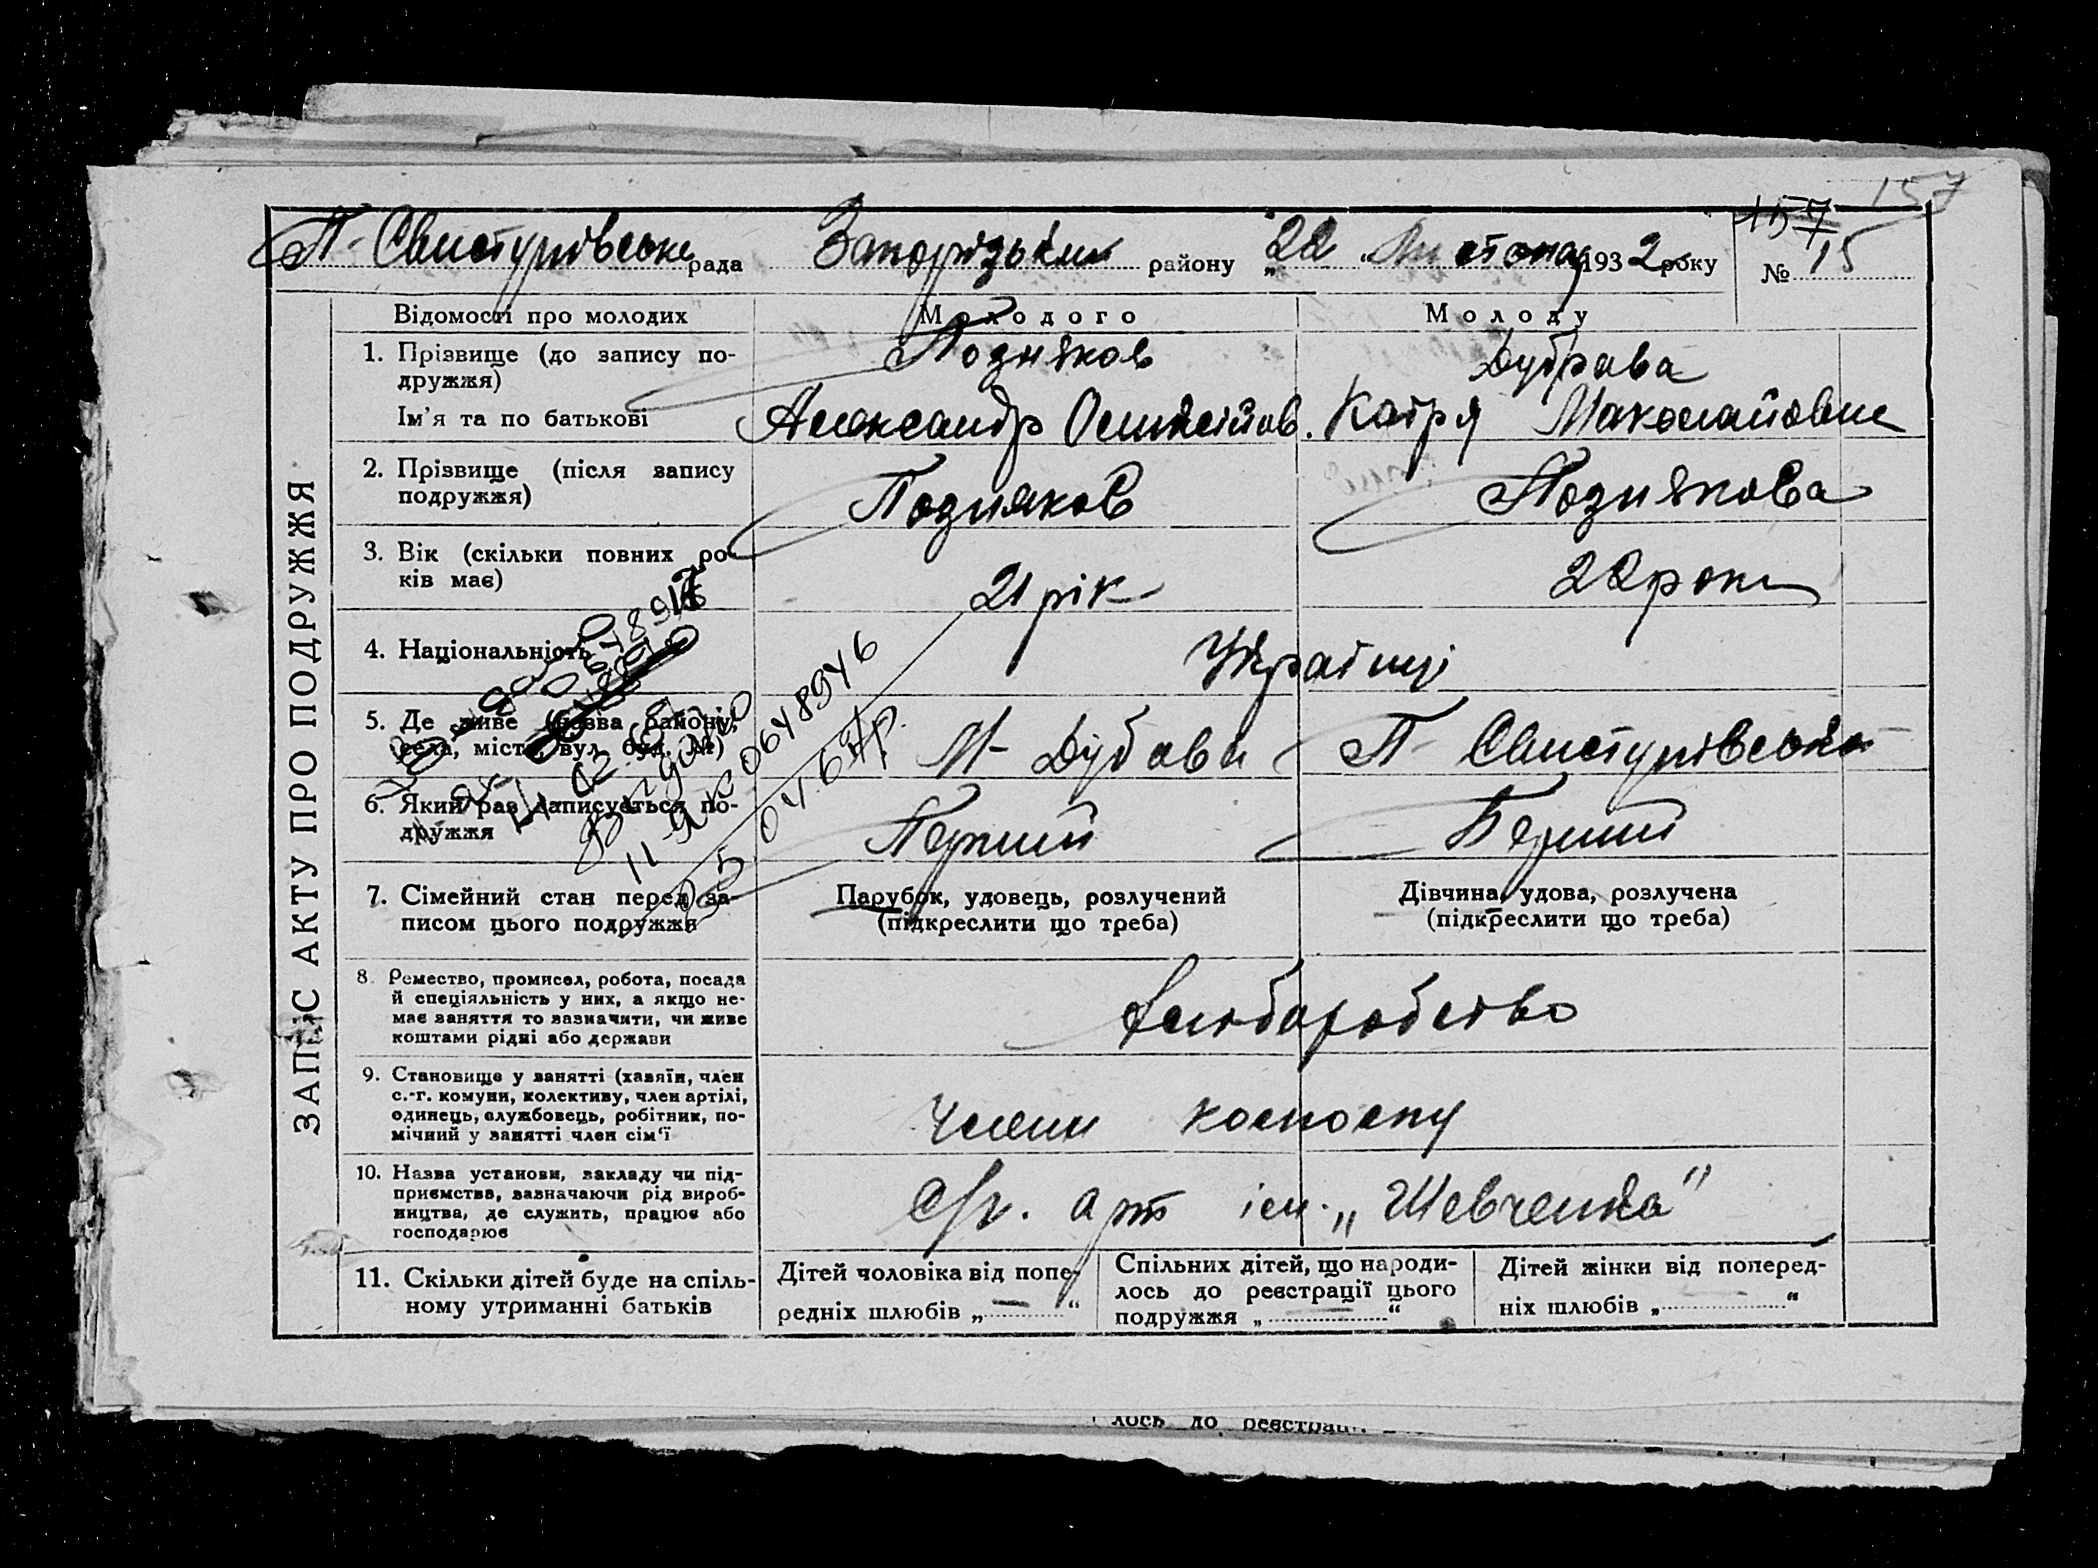 157
157
П- Свистунівське рада Запорізький району „22" Листопад 1932 року № 15
ЗАПИС АКТУ ПРО ПОДРУЖЖЯ
Відомості про молодих Молодого Молоду
1. Прізвище (до запису по-
дружжя) Позняков Дубрава
Ім'я та по батькові Александр Катря
2. Прізвище (після запису
подружжя) Позняков Познякова
3. Вік (скільки повних ро-
ків має) 21 рік 22 роки
4. Національність Українці
5. Де живе (назва району,
села, міста, вул. буд. №) П- Свистунівська
6. Який раз записується по-
дружжя Перший Перший
7. Сімейний стан перед за-
писом цього подружжя
Парубок, удовець, розлучений
(підкреслити що треба)
Дівчина, удова, розлучена
(підкреслити що треба)
8. Ремество, промисел, робота, посада
й спеціяльність у них, а якщо не-
має заняття то зазначити, чи живе
коштами рідні або держави
хліборобство
9. Становище у занятті (хазяїн, член
с.-г. комуни, колективу, член артілі,
одинець, службовець, робітник, по-
мічний у занятті член сім'ї
Члени колгоспу
10. Назва установи, закладу чи під-
приємства, зазначаючи рід вироб-
ництва, де служить, працює або
господарює
с/г. арт ім. „Шевченка"
11. Скільки дітей буде на спіль-
ному утриманні батьків
Дітей чоловіка від попе-
редніх шлюбів „ — "
Спільних дітей, що народи-
лось до реєстрації цього
подружжя „ — "
Дітей жінки від поперед-
ніх шлюбів „ "
лось до реєстрац